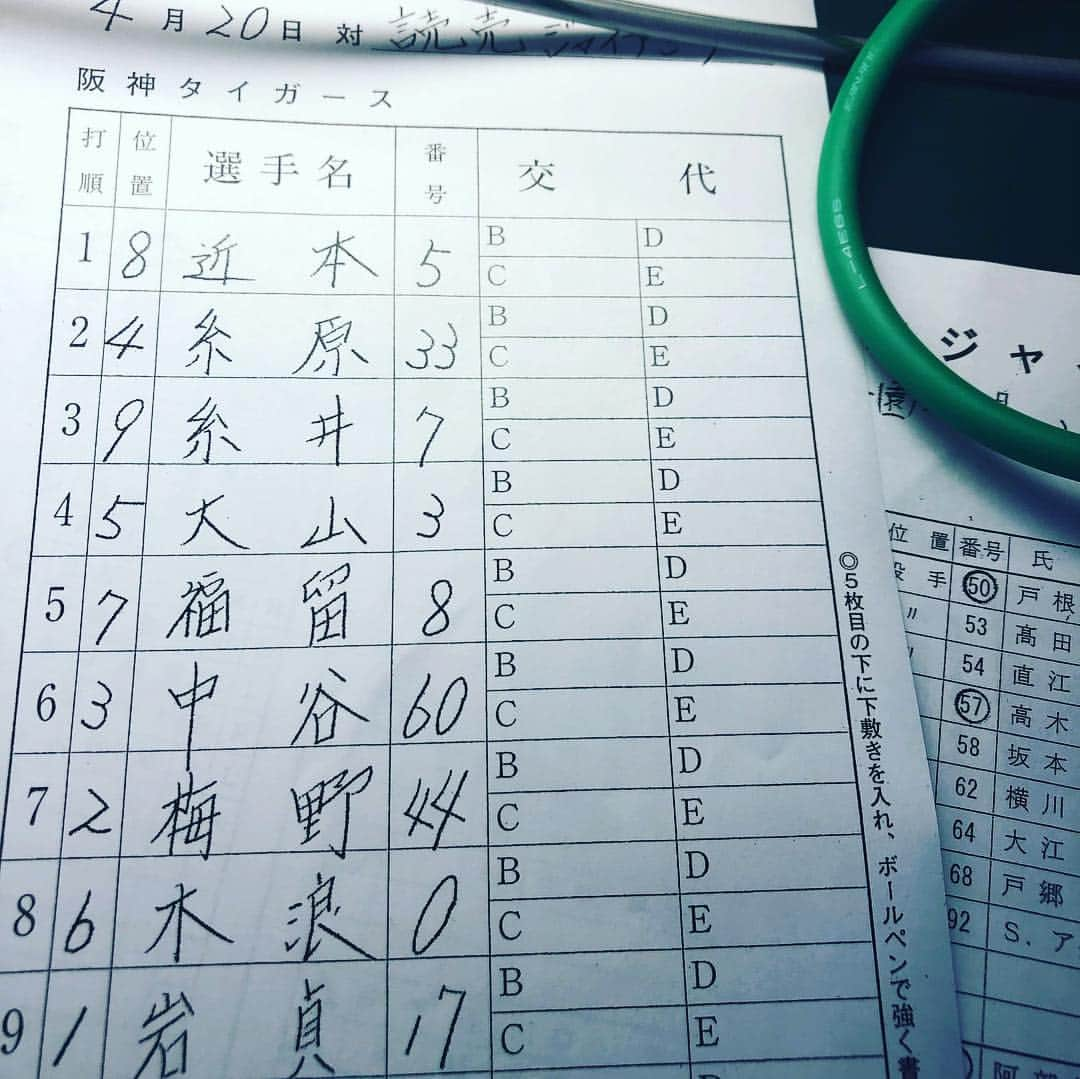 4月20日 対 読売ジャイアンツ
阪神タイガース
打順 位置 選手名 番号 交代
1 8 近本 5 B D
C E
2 4 糸原 33 B D
C E
3 9 糸井 7 B D
C E
4 5 大山 3 B D
C E
5 7 福留 8 B D
C E
6 3 中谷 60 B D
C E
7 2 梅野 44 B D
C E
8 6 木浪 0 B D
C E
9 1 岩貞 17 B D
C E
B D
◎5枚目の下に下敷きを入れ、ボールペンで強く書
L-4E6S
ジャ
位置 番号 氏
投手 50 戸根
〃 53 髙田
54 直江
57 高木
58 坂本
62 横川
64 大江
68 戸郷
92 S.ア